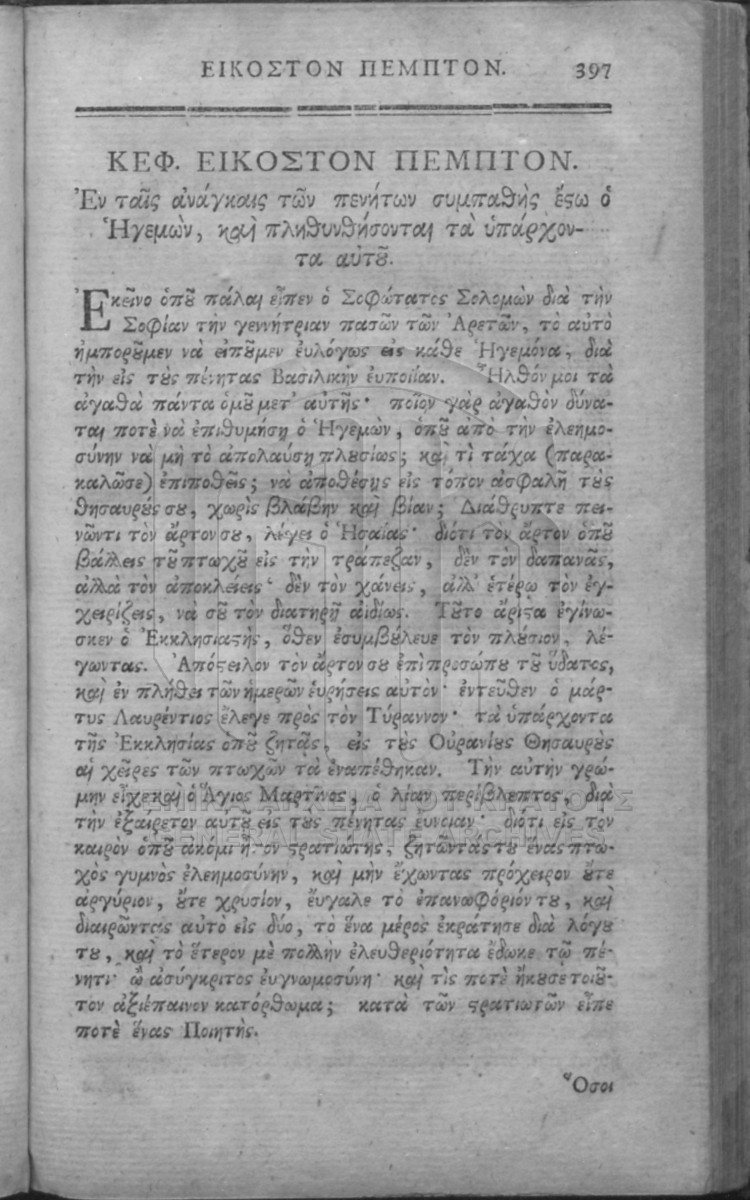 ΕΙΚΟΣΤΟΝ ΠΕΜΠΤΟΝ. 397
ΚΕΦ. ΕΙΚΟΣΤΟΝ ΠΕΜΠΤΟΝ.
Ἐν ταῖς ἀνάγκαις τῶν πενήτων συμπαθὴς ἔϛω ὁ
Ἡγεμὼν, καὶ πληθυνθήσονται τὰ ὑπάρχον-
τα αὐτȣ͂.
Ἐκεῖνο ὁπȣ͂ πάλαι εἶπεν ὁ Σοφώτατος Σολομὼν διὰ τὴν
Σοφίαν τὴν γεννήτριαν πασῶν τῶν Ἀρετῶν, τὸ αὐτὸ
ἠμπορȣ͂μεν νὰ εἰπȣ͂μεν ἐυλόγως εἰς κάθε Ἡγεμόνα, διὰ
τὴν εἰς τȣ̀ς πένητας Βασιλικὴν ἐυποιΐαν. Ἦλθόν μοι τὰ
ἀγαθὰ πάντα ὁμȣ͂ μετ' αὐτῆς· ποῖον γὰρ ἀγαθὸν δύνα-
ται ποτὲ νὰ ἐπιθυμήσῃ ὁ Ἡγεμὼν, ὁπȣ͂ ἀπὸ τὴν ἐλεημο-
σύνην νὰ μὴ τὸ ἀπολαύσῃ πλȣσίως; καὶ τὶ τάχα (παρα-
καλῶσε) ἐπιποθεῖς; νὰ ἀποθέσῃς εἰς τόπον ἀσφαλῆ τȣ̀ς
θησαυρȣ́ς σȣ, χωρὶς βλάβην καὶ βίαν; Διάθρυπτε πει-
νῶντι τὸν ἄρτον σȣ, λέγει ὁ Ἡσαΐας· διότι τὸν ἄρτον ὁπȣ͂
βάλλεις τȣ͂ πτωχȣ͂ εἰς τὴν τράπεζαν, δὲν τὸν δαπανᾶς,
ἀλλὰ τὸν ἀποκλείεις· δὲν τὸν χάνεις, ἀλλ' ἑτέρῳ τὸν ἐγ-
χειρίζεις, νὰ σȣ͂ τὸν διατηρῇ ἀϊδίως. Τȣ͂το ἄριϛα ἐγίνω-
σκεν ὁ Ἐκκλησιαϛὴς, ὅθεν ἐσυμβȣ́λευε τὸν πλȣ́σιον, λέ-
γωντας. Ἀπόϛειλον τὸν ἄρτον σȣ ἐπὶ προσώπȣ τȣ͂ ὕδατος,
καὶ ἐν πλήθει τῶν ἡμερῶν ἑυρήσεις αὐτόν· ἐντεῦθεν ὁ μάρ-
τυς Λαυρέντιος ἔλεγε πρὸς τὸν Τύραννον· τὰ ὑπάρχοντα
τῆς Ἐκκλησίας ὁπȣ͂ ζητᾷς, εἰς τȣ̀ς Οὐρανίȣς Θησαυρȣ̀ς
αἱ χεῖρες τῶν πτωχῶν τὰ ἐναπέθηκαν. Τὴν αὐτὴν γνώ-
μην εἶχε καὶ ὁ Ἅγιος Μαρτῖνος, ὁ λίαν περίβλεπτος, διὰ
τὴν ἐξαίρετον αὐτȣ͂ εἰς τȣ̀ς πένητας ἔυνοιαν· διότι εἰς τὸν
καιρὸν ὁπȣ͂ ἀκόμι ἦτον ϛρατιώτης, ζητῶντάς τȣ ἕνας πτω-
χὸς γυμνὸς ἐλεημοσύνην, καὶ μὴν ἔχωντας πρόχειρον ȣ̓́τε
ἀργύριον, ȣ̓́τε χρυσίον, ἔυγαλε τὸ ἐπανωφόριόν τȣ, καὶ
διαιρῶντας αὐτὸ εἰς δύο, τὸ ἕνα μέρος ἐκράτησε διὰ λόγȣ
τȣ, καὶ τὸ ἕτερον μὲ πολλὴν ἐλευθεριότητα ἔδωκε τῷ πέ-
νητι· ὢ ἀσύγκριτος ἐυγνωμοσύνη· καὶ τὶς ποτὲ ἤκȣσε τοιȣ͂-
τον ἀξιέπαινον κατόρθωμα; κατὰ τῶν ϛρατιωτῶν εἶπε
ποτὲ ἕνας Ποιητής.
Ὅσοι
ΓΕΝΙΚΑ ΑΡΧΕΙΑ ΤΟΥ ΚΡΑΤΟΥΣ
GENERAL STATE ARCHIVES